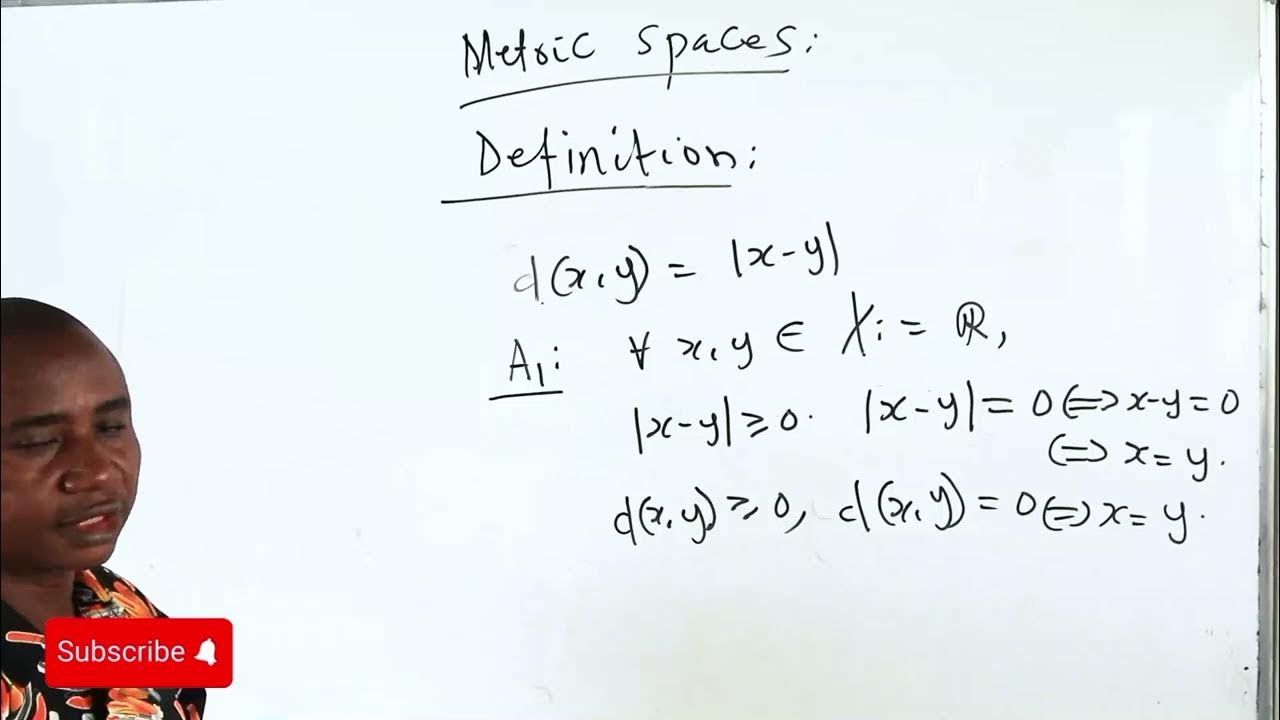 Metric spaces:
Definition:
d(x,y) = |x-y|
A₁: ∀ x,y ∈ X:= ℝ,
|x-y| ≥ 0. |x-y| = 0 ⟺ x-y = 0
⟺ x = y.
d(x,y) ≥ 0, d(x,y) = 0 ⟺ x = y.
Subscribe